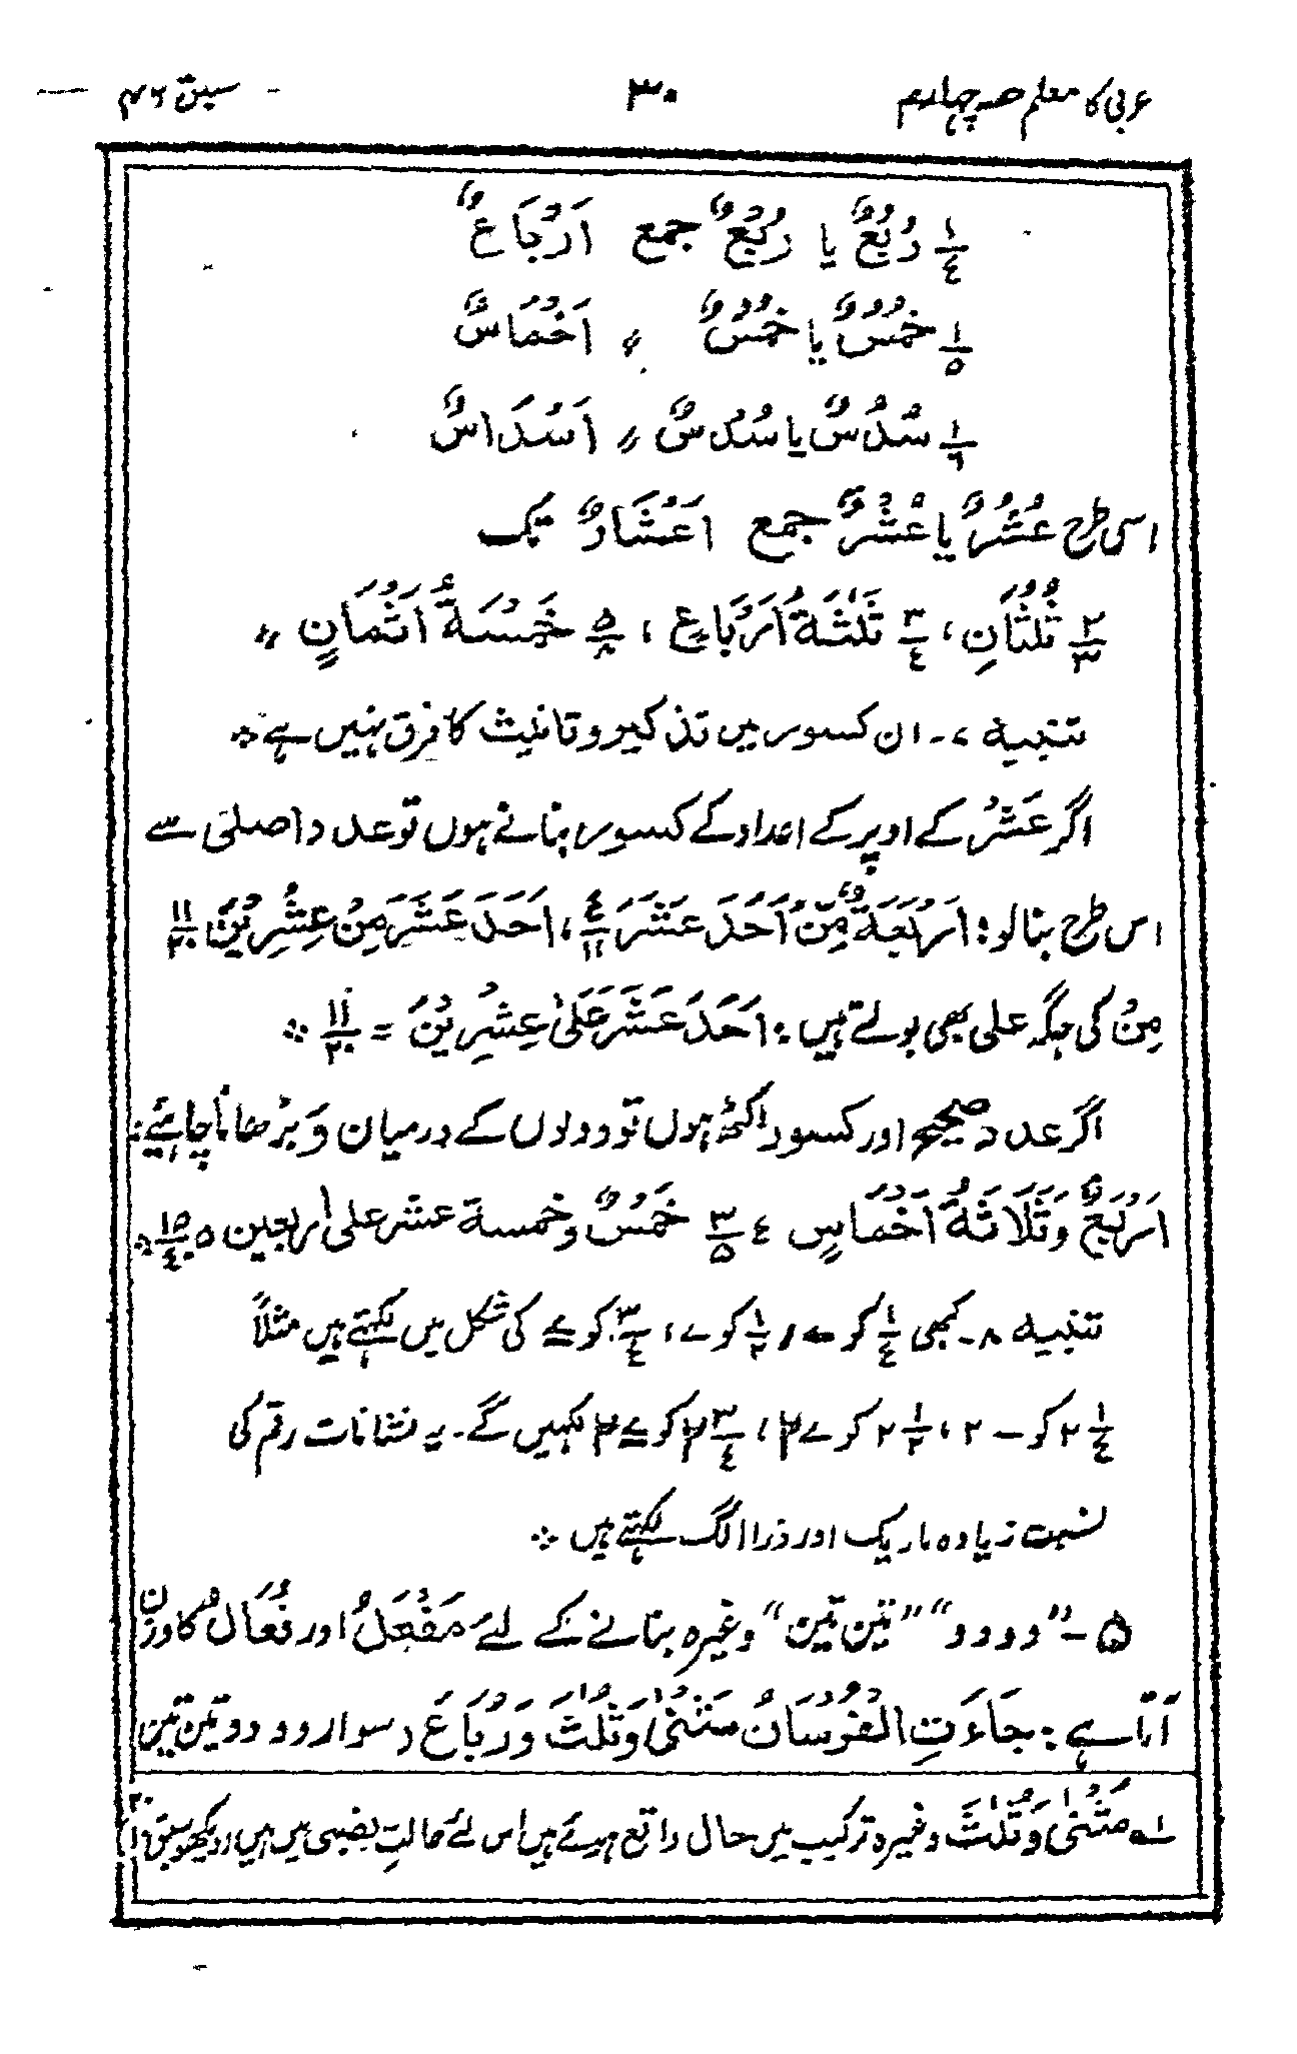 عربی کا معلم حصہ چہارم ۳۰ سبق ۴۶
۱/٤ رُبُعٌ یا رُبْعٌ جمع اَرْبَاعٌ
۱/۵ خُمُسٌ یا خُمْسٌ 〃 اَخْمَاسٌ
۱/۶ سُدُسٌ یا سُدْسٌ 〃 اَسْدَاسٌ
اسی طرح عُشُرٌ یا عُشْرٌ جمع اَعْشَارٌ تک
۲/۳ ثُلُثَانِ، ۳/٤ ثَلٰثَةُ اَرْبَاعٍ، ۵/۸ خَمْسَةُ اَثْمَانٍ 〃
تنبیہ ۷۔ ان کسور میں تذکیر و تانیث کا فرق نہیں ہے ؞
اگر عَشَرْ کے اوپر کے اعداد کے کسور بنانے ہوں تو عدد اصلی سے
اس طرح بنالو: اَرْبَعَةٌ مِّنْ اَحَدَ عَشَرَ ٤/۱۱، اَحَدَ عَشَرَ مِنْ عِشْرِيْنَ ۱۱/۲۰
مِنْ کی جگہ علی بھی بولتے ہیں: اَحَدَ عَشَرَ عَلٰى عِشْرِيْنَ = ۱۱/۲۰ ؞
اگر عدد صحیح اور کسور اکٹھے ہوں تو دونوں کے درمیان وَ بڑھانا چاہئے:
اَرْبَعٌ وَثَلَاثَةُ اَخْمَاسٍ ٤ ۳/۵ خَمْسٌ وخمسة عشر على اربعين ۵ ۱۵/٤۰ ؞
تنبیہ ۸۔ کبھی ۱/٤ کو ، ۱/۲ کو ، ۳/٤ کو کی شکل میں لکھتے ہیں مثلاً
۲ ۱/٤ کو ۲، ۲ ۱/۲ کو ۲، ۲ ۳/٤ کو ۲ لکھیں گے۔ یہ نشانات رقم کی
نسبت زیادہ باریک اور ذرا الگ لکھتے ہیں ؞
۵ - ”دو دو“ ”تین تین“ وغیرہ بنانے کے لئے مَفْعَلُ اور فُعَالُ کا وزن
آتا ہے: جَاءَتِ الْفُرْسَانُ مَثْنٰى وَثُلٰثَ وَرُبَاعَ (سوار دو دو تین تین
۱؎ مَثْنٰى وَثُلٰثَ وغیرہ ترکیب میں حال واقع ہوئے ہیں اس لئے حالتِ نصبی میں ہیں (دیکھو سبق